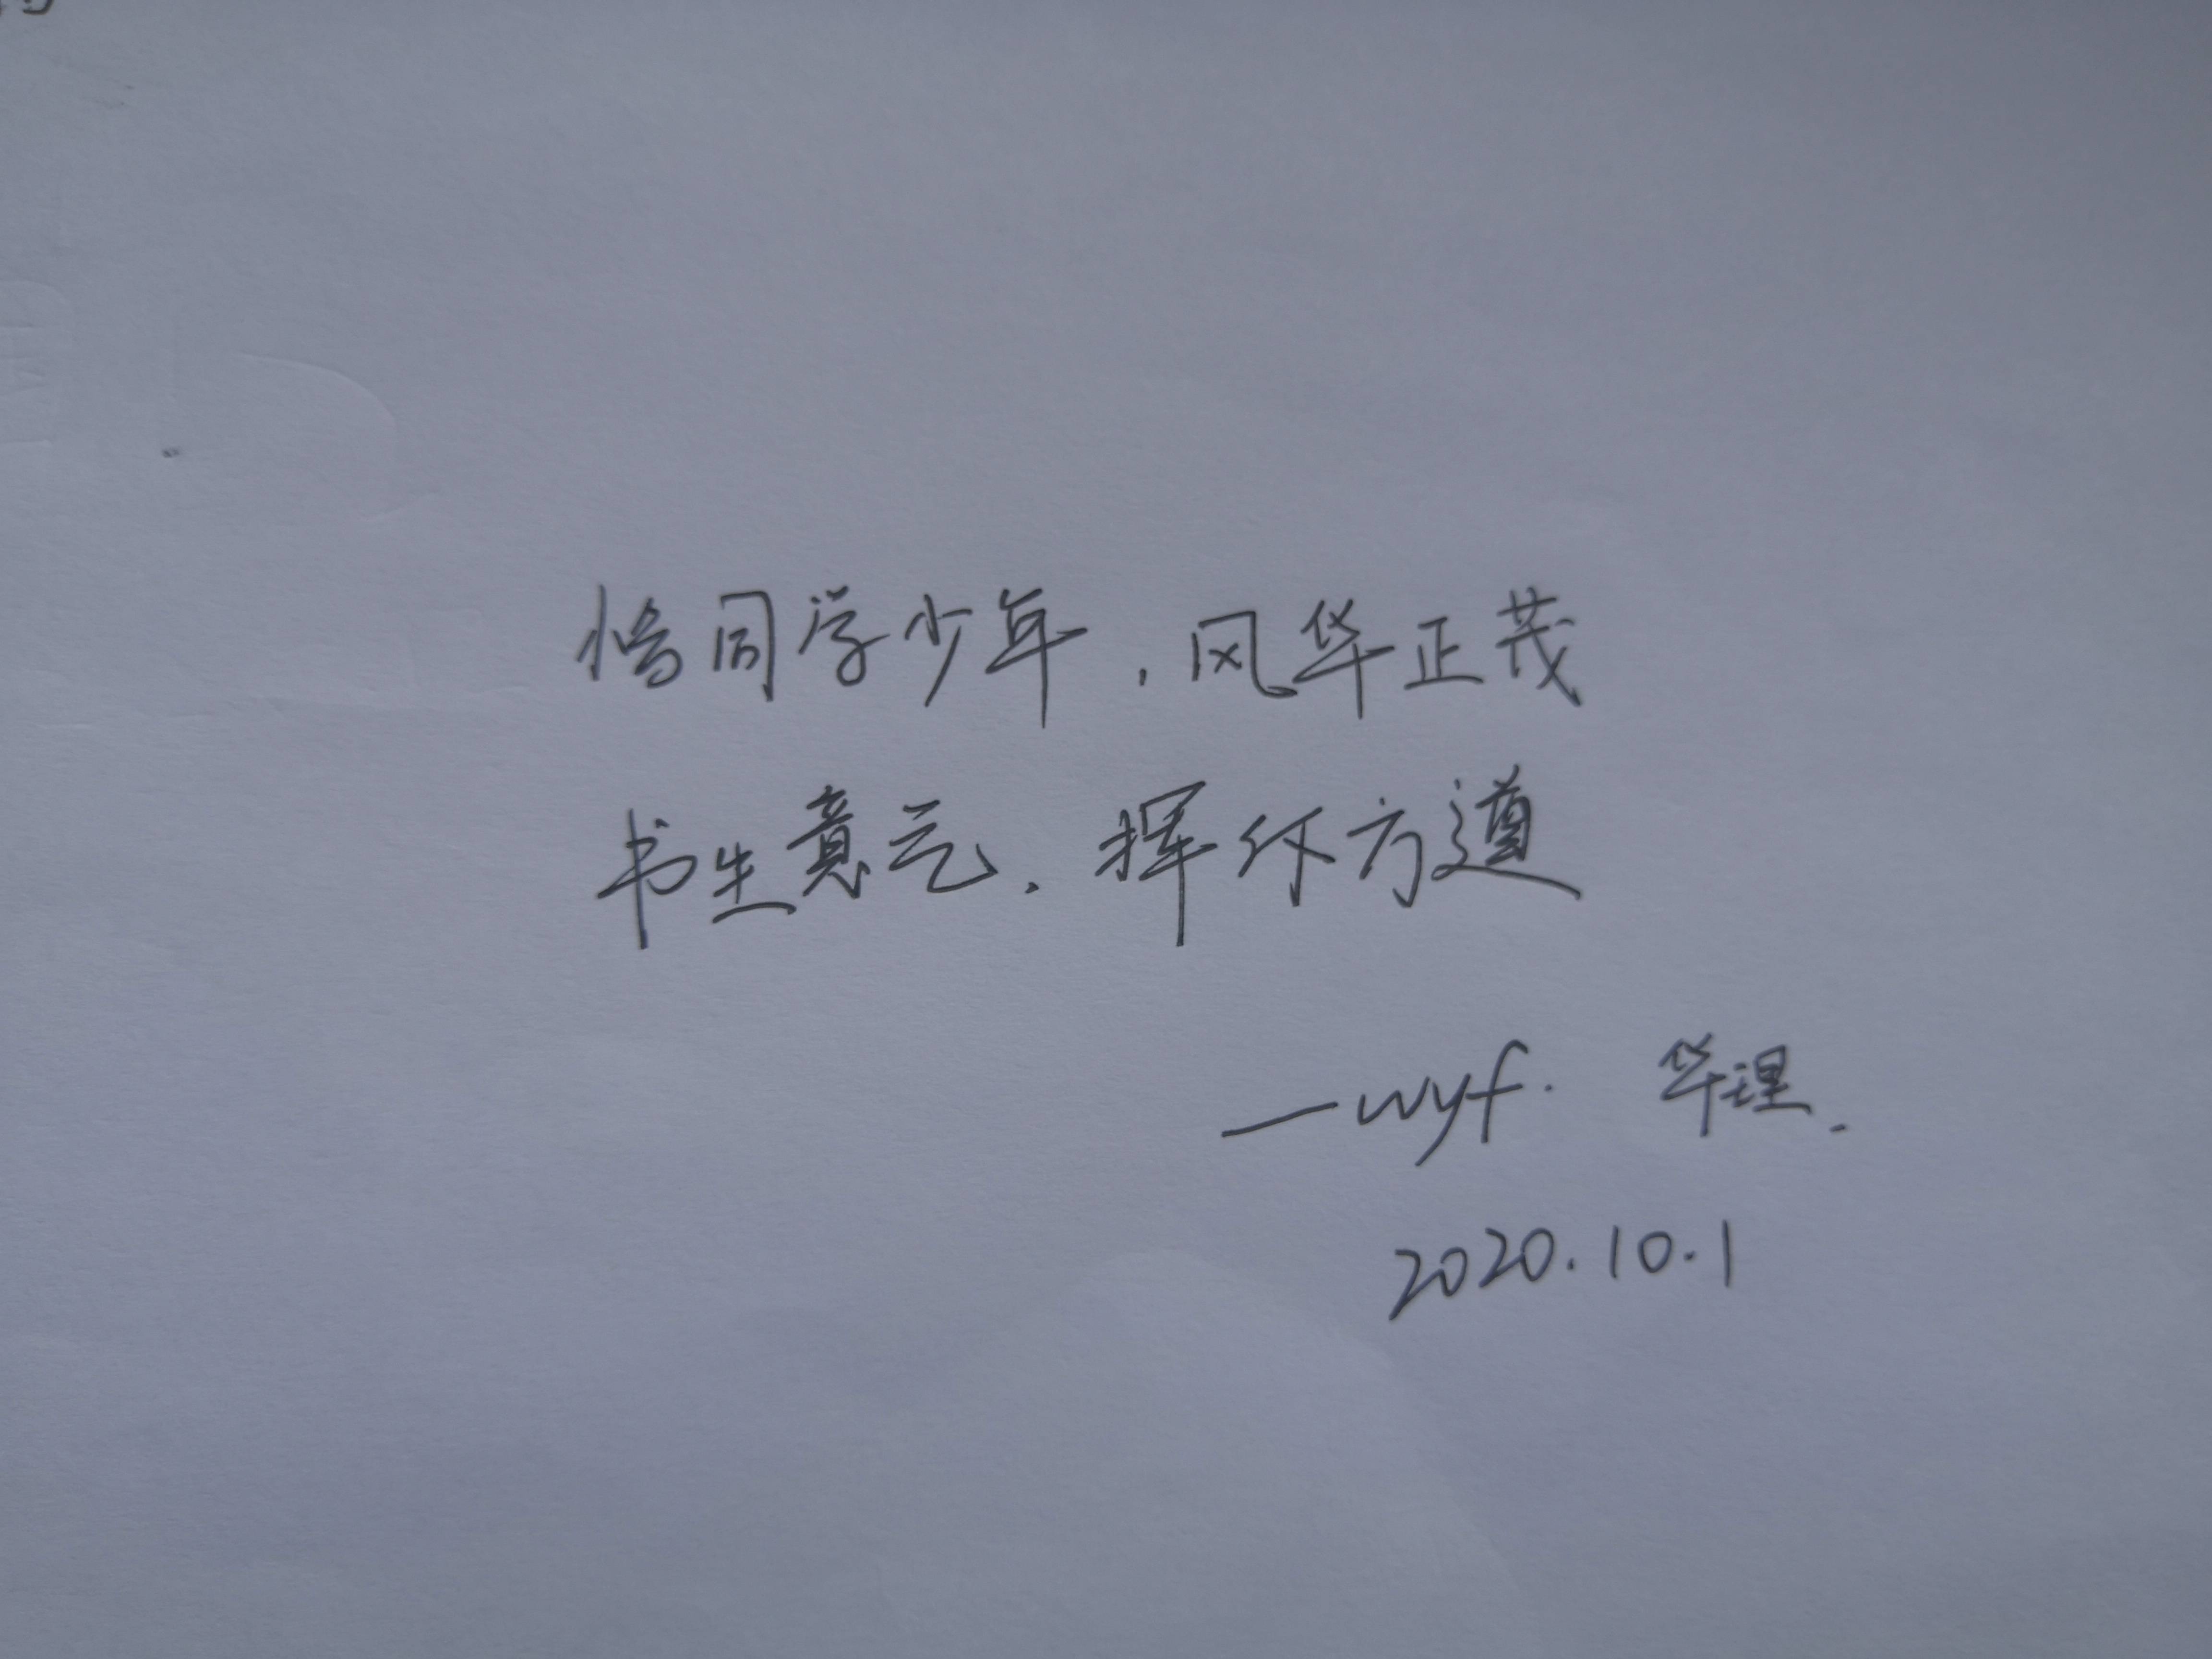 恰同学少年,风华正茂
书生意气,挥斥方遒
—wyf. 华理.
2020.10.1